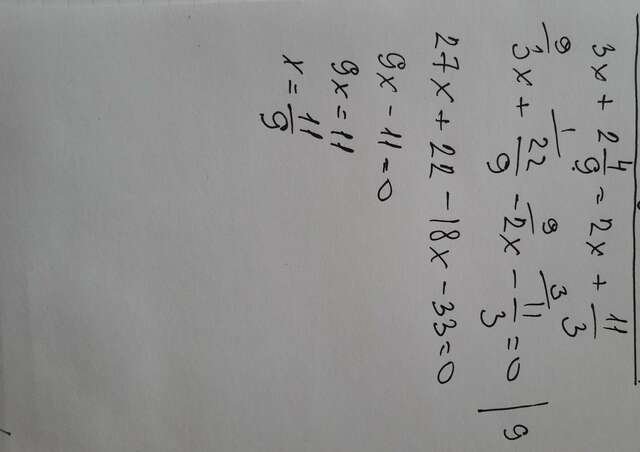 3x + 2 4/9 = 2x + 11/3
9 1 9 3
3x + 22/9 - 2x - 11/3 = 0 | 9
27x + 22 - 18x - 33 = 0
9x - 11 = 0
9x = 11
x = 11/9